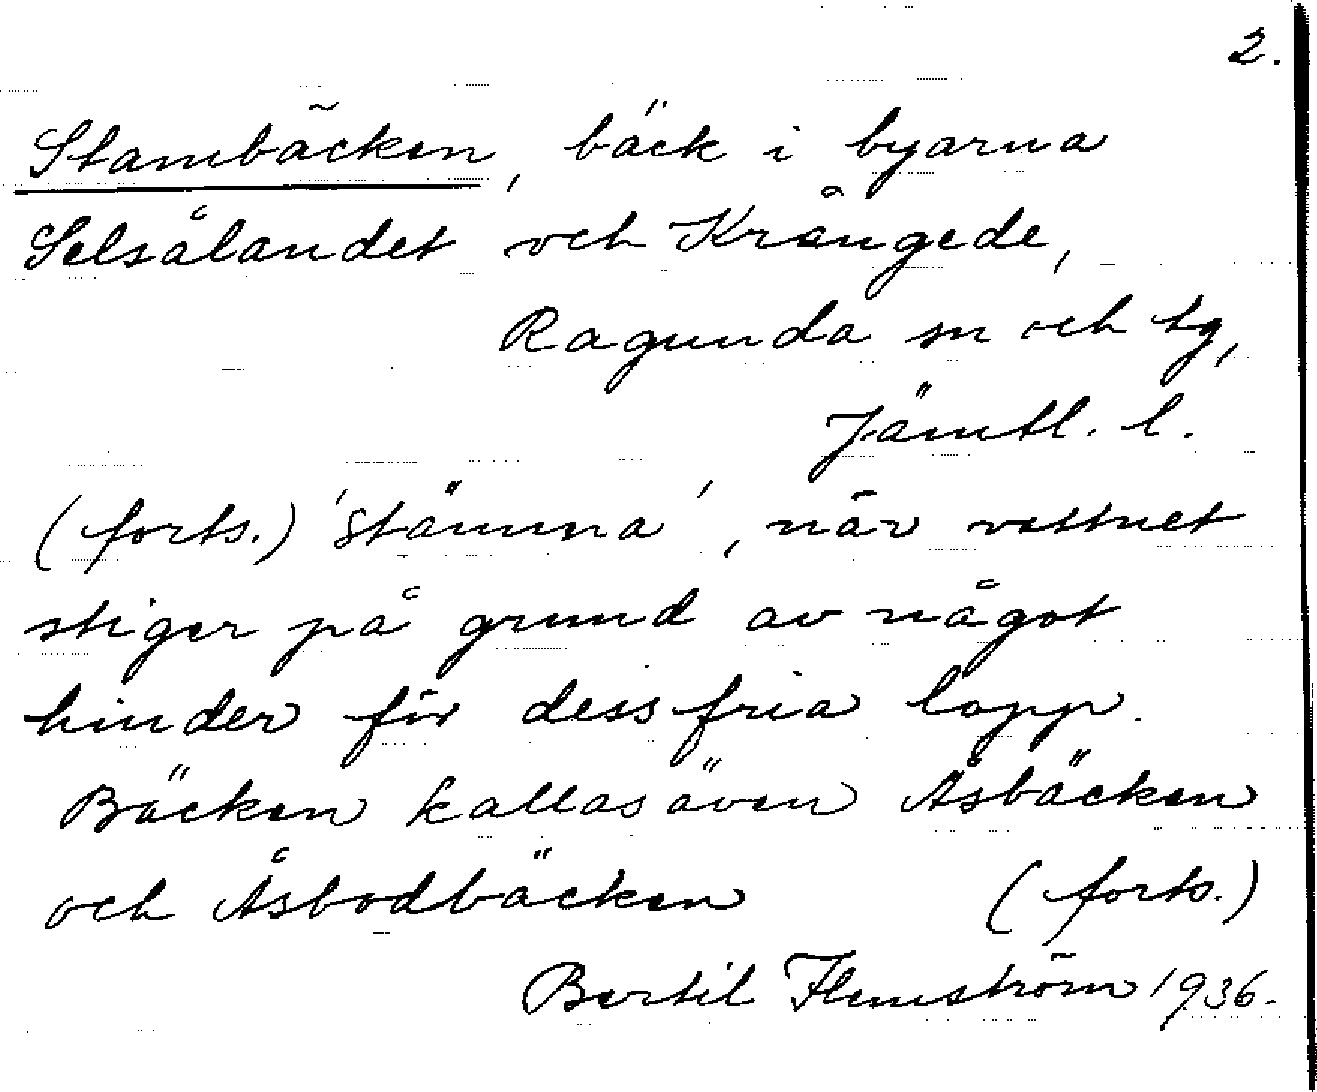 2.
Stambäcken, bäck i byarna
Selsålandet och Krångede,
Ragunda sn och tg,
Jämtl. l.
(forts.) 'stämma', när vattnet
stiger på grund av något
hinder för dess fria lopp.
Bäcken kallas även Åsbäcken
och Åsbodbäcken (forts.)
Bertil Flemström 1936.